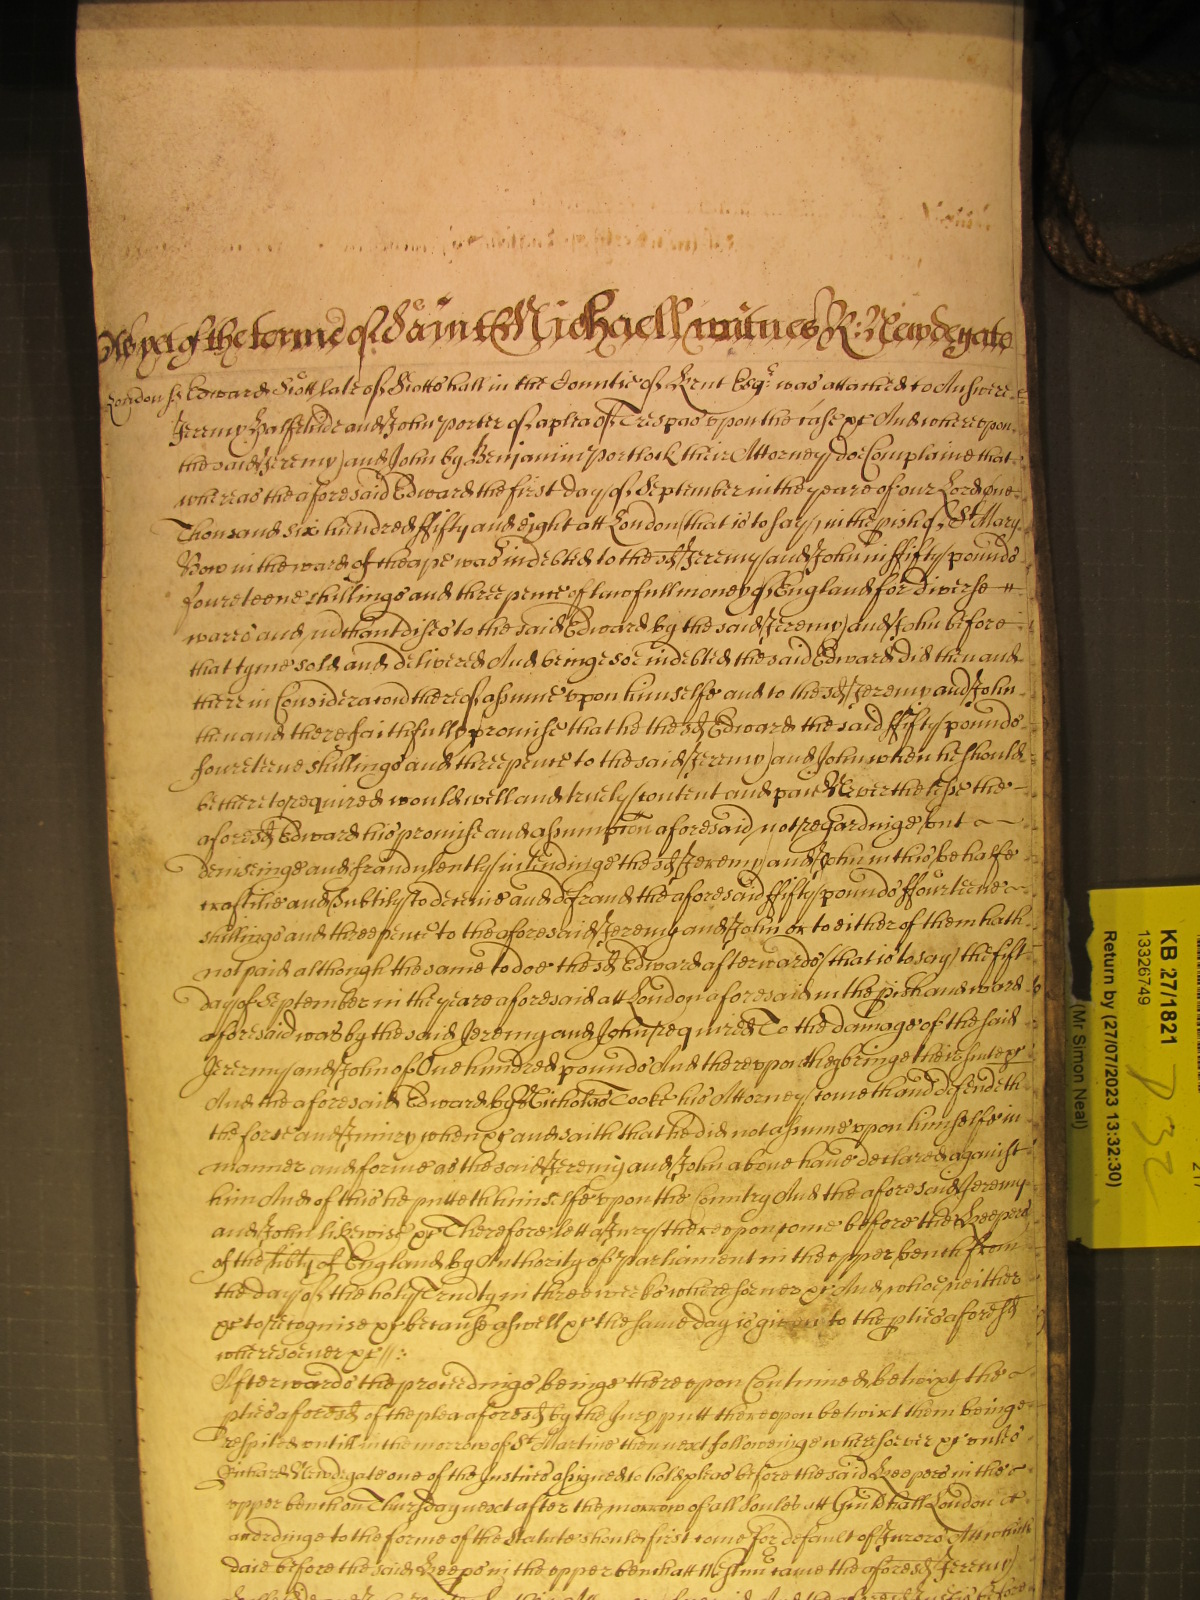 As yet of the terme of Saint Michaell witnes R: Newdegate
London ss Edward Scott late of Scotts hall in the Countie of Kent Esqr was attached to Answere
Jeremy and John Porter of a plea of Trespas upon the case &c And whereupon
the said Jeremy and John by Benjamin Portlock their Attorney doe Complaine that
whereas the aforesaid Edward the first day of September in the yeare of our Lord One
Thousand six hundred fifty and eight att London that is to say in the pish of St Mary
Bow in the ward of Cheape was indebted to the sd Jeremy and John in fifty pounds
foureteene shillings and three pence of lawfull money of England for diverse
wares and mchandises to the said Edward by the said Jeremy and John before
that tyme sold and delivered And beinge soe indebted the said Edward did then and
there in Consideracon thereof assume upon himselfe and to the sd Jeremy and John
then and there faithfully promise that he the sd Edward the said fifty pounds
foureteene shillings and three pence to the said Jeremy and John when he should
be thereto required would well and truely content and pay Neverthelesse the
aforesd Edward his promise and assumption aforesaid not regardinge but
deviseinge and fraudulently intendinge the sd Jeremy and John in this behalfe
craftilie and subtily to deceive and defraud the aforesaid fifty pounds ffoureteene
shillings and three pence to the aforesaid Jeremy and John or to either of them hath
not paid although the same to doe the sd Edward afterwards that is to say the fift
day of September in the yeare aforesaid att London aforesaid in the pish and ward
aforesaid was by the said Jeremy and John required To the damage of the said
Jeremy and John of One hundred pounds And thereupon they bringe their suite &c
And the aforesaid Edward by Nicholas Tooke his Attorney cometh and defendeth
the force and Injury when &c and saith that he did not assume upon himselfe in
manner and forme as the said Jeremy and John above have declared against
him And of this he putteth himselfe upon the Country And the aforesaid Jeremy
and John likewise &c Therefore lett a Jury thereupon come before the Keepers
of the libty of England by Authority of Parliament in the upper bench from
the day of the holy Trinity in three weeks wheresoever &c And who neither
&c to recognise &c because aswell &c the same day is given to the pties aforesd
wheresoever &c //:
Afterwards the proceedings beinge thereupon Continued betwixt the
pties aforesd of the plea aforesd by the Jury putt thereupon betwixt them beinge
respited untill in the morrow of St Martine then next followeinge wheresoever &c unles
Richard Newdegate one of the Justices assigned to hold pleas before the said Keepers in the
upper bench on Thursday next after the morrow of all Soules att Guildhall London
accordinge to the forme of the Statute should first come for default of Jurors Att which
daie before the said Keeps in the upper bench att Westmr came the aforesd Jeremy